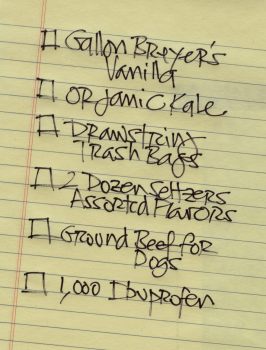 Gallon Breyer's
Vanilla
Organic Kale
Drawstring
Trash Bags
2 Dozen Seltzers
Assorted Flavors
Ground Beef for
Dogs
1,000 Ibuprofen